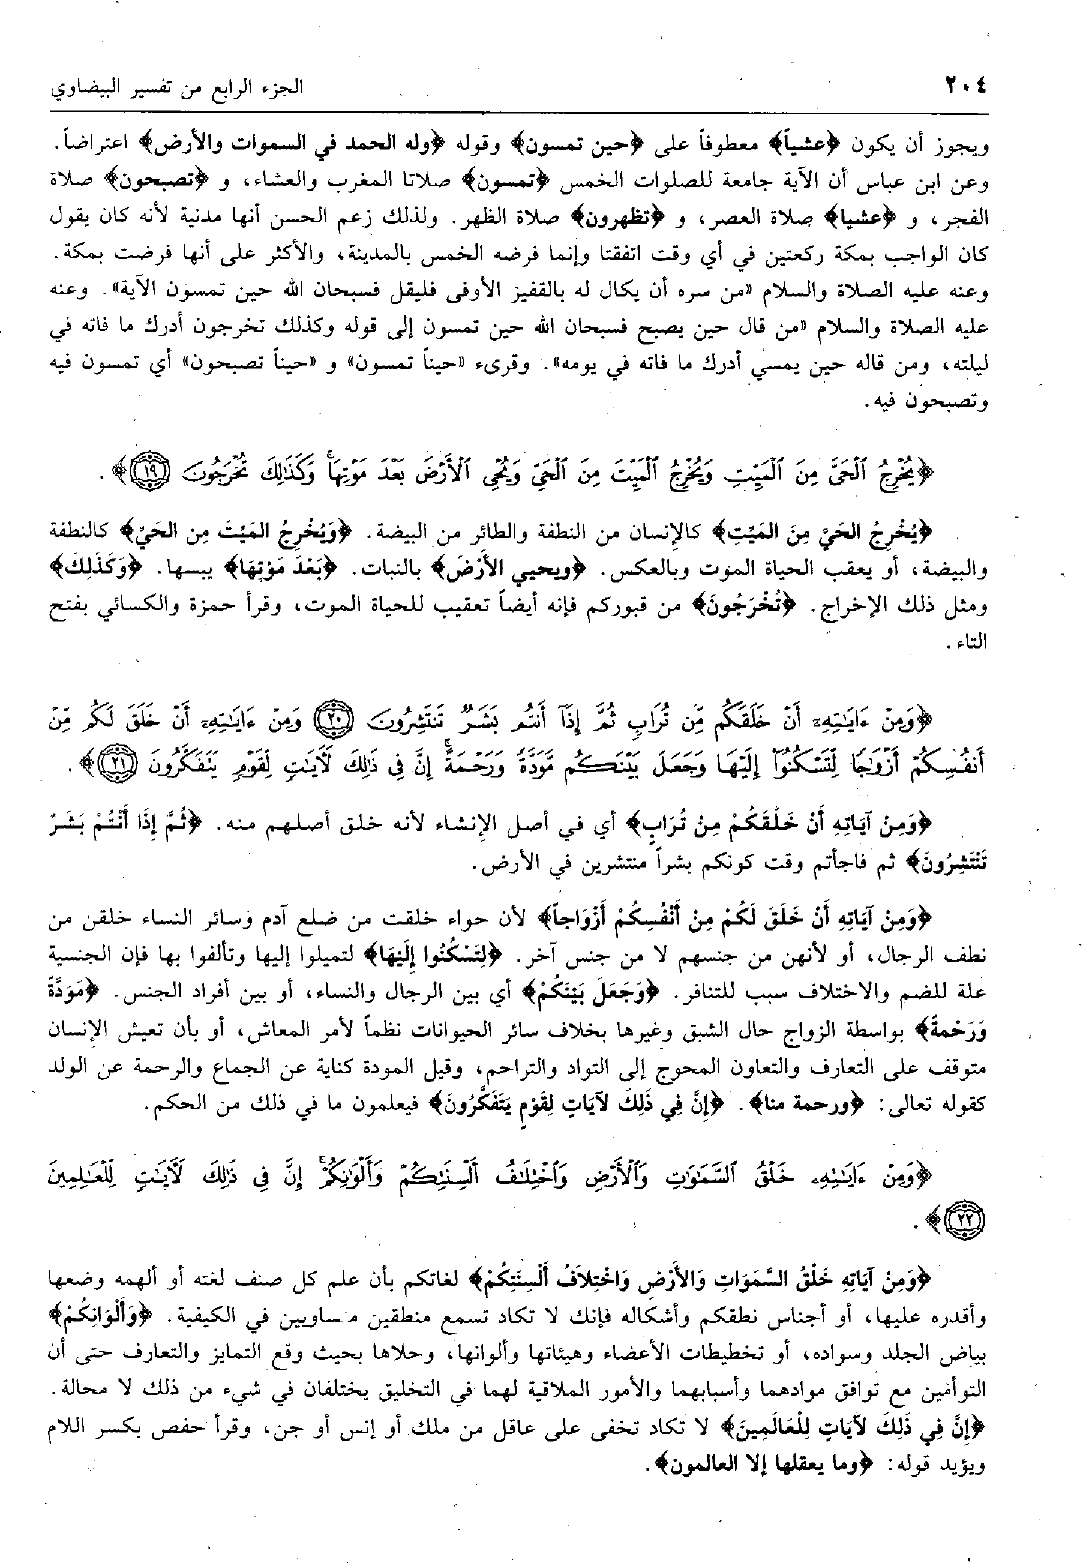 ٢٠٤
الجزء الرابع من تفسير البيضاوي
ويجوز أن يكون ﴿عشياً﴾ معطوفاً على ﴿حين تمسون﴾ وقوله ﴿وله الحمد في السموات والأرض﴾ اعتراضاً.
وعن ابن عباس أن الآية جامعة للصلوات الخمس ﴿تمسون﴾ صلاتا المغرب والعشاء، و ﴿تصبحون﴾ صلاة
الفجر، و ﴿عشيا﴾ صلاة العصر، و ﴿تظهرون﴾ صلاة الظهر. ولذلك زعم الحسن أنها مدنية لأنه كان يقول
كان الواجب بمكة ركعتين في أي وقت اتفقتا وإنما فرضه الخمس بالمدينة، والأكثر على أنها فرضت بمكة.
وعنه عليه الصلاة والسلام «من سره أن يكال له بالقفيز الأوفى فليقل فسبحان الله حين تمسون الآية». وعنه
عليه الصلاة والسلام «من قال حين يصبح فسبحان الله حين تمسون إلى قوله وكذلك تخرجون أدرك ما فاته في
ليلته، ومن قاله حين يمسي أدرك ما فاته في يومه». وقرىء «حيناً تمسون» و «حيناً تصبحون» أي تمسون فيه
وتصبحون فيه.
﴿يُخْرِجُ ٱلْحَىَّ مِنَ ٱلْمَيِّتِ وَيُخْرِجُ ٱلْمَيِّتَ مِنَ ٱلْحَىِّ وَيُحْىِ ٱلْأَرْضَ بَعْدَ مَوْتِهَا ۚ وَكَذَٰلِكَ تُخْرَجُونَ ١٩﴾.
﴿يُخْرِجُ الحَيَّ مِنَ المَيِّتِ﴾ كالإنسان من النطفة والطائر من البيضة. ﴿وَيُخْرِجُ المَيِّتَ مِن الحَيِّ﴾ كالنطفة
والبيضة، أو يعقب الحياة الموت وبالعكس. ﴿ويحيي الأَرْضَ﴾ بالنبات. ﴿بَعْدَ مَوْتِهَا﴾ يبسها. ﴿وَكَذَلِكَ﴾
ومثل ذلك الإخراج. ﴿تُخْرَجُونَ﴾ من قبوركم فإنه أيضاً تعقيب للحياة الموت، وقرأ حمزة والكسائي بفتح
التاء.
﴿وَمِنْ ءَايَٰتِهِۦٓ أَنْ خَلَقَكُم مِّن تُرَابٍ ثُمَّ إِذَآ أَنتُم بَشَرٌ تَنتَشِرُونَ ٢٠ وَمِنْ ءَايَٰتِهِۦٓ أَنْ خَلَقَ لَكُم مِّنْ
أَنفُسِكُمْ أَزْوَٰجًا لِّتَسْكُنُوٓا۟ إِلَيْهَا وَجَعَلَ بَيْنَكُم مَّوَدَّةً وَرَحْمَةً ۚ إِنَّ فِى ذَٰلِكَ لَءَايَٰتٍ لِّقَوْمٍ يَتَفَكَّرُونَ ٢١﴾.
﴿وَمِنْ آيَاتِهِ أَنْ خَلَقَكُمْ مِنْ تُرَابٍ﴾ أي في أصل الإنشاء لأنه خلق أصلهم منه. ﴿ثُمَّ إِذَا أَنْتُمْ بَشَرٌ
تَنْتَشِرُونَ﴾ ثم فاجأتم وقت كونكم بشراً منتشرين في الأرض.
﴿وَمِنْ آيَاتِهِ أَنْ خَلَقَ لَكُمْ مِنْ أَنْفُسِكُمْ أَزْوَاجاً﴾ لأن حواء خلقت من ضلع آدم وسائر النساء خلقن من
نطف الرجال، أو لأنهن من جنسهم لا من جنس آخر. ﴿لِتَسْكُنُوا إِلَيْهَا﴾ لتميلوا إليها وتألفوا بها فإن الجنسية
علة للضم والاختلاف سبب للتنافر. ﴿وَجَعَلَ بَيْنَكُمْ﴾ أي بين الرجال والنساء، أو بين أفراد الجنس. ﴿مَوَدَّةً
وَرَحْمَةً﴾ بواسطة الزواج حال الشبق وغيرها بخلاف سائر الحيوانات نظماً لأمر المعاش، أو بأن تعيش الإنسان
متوقف على التعارف والتعاون المحوج إلى التواد والتراحم، وقيل المودة كناية عن الجماع والرحمة عن الولد
كقوله تعالى: ﴿ورحمة منا﴾. ﴿إِنَّ فِي ذَلِكَ لآيَاتٍ لِقَوْمٍ يَتَفَكَّرُونَ﴾ فيعلمون ما في ذلك من الحكم.
﴿وَمِنْ ءَايَٰتِهِۦ خَلْقُ ٱلسَّمَٰوَٰتِ وَٱلْأَرْضِ وَٱخْتِلَٰفُ أَلْسِنَتِكُمْ وَأَلْوَٰنِكُمْ ۚ إِنَّ فِى ذَٰلِكَ لَءَايَٰتٍ لِّلْعَٰلِمِينَ
٢٢﴾.
﴿وَمِنْ آيَاتِهِ خَلْقُ السَّمَوَاتِ وَالأَرْضِ وَاخْتِلاَفُ أَلْسِنَتِكُمْ﴾ لغاتكم بأن علم كل صنف لغته أو ألهمه وضعها
وأقدره عليها، أو أجناس نطقكم وأشكاله فإنك لا تكاد تسمع منطقين متساويين في الكيفية. ﴿وَأَلْوَانِكُمْ﴾
بياض الجلد وسواده، أو تخطيطات الأعضاء وهيئاتها وألوانها، وحلاها بحيث وقع التمايز والتعارف حتى أن
التوأمين مع توافق موادهما وأسبابهما والأمور الملاقية لهما في التخليق يختلفان في شيء من ذلك لا محالة.
﴿إِنَّ فِي ذَلِكَ لآيَاتٍ لِلْعَالَمِينَ﴾ لا تكاد تخفى على عاقل من ملك أو إنس أو جن، وقرأ حفص بكسر اللام
ويؤيد قوله: ﴿وما يعقلها إلا العالمون﴾.